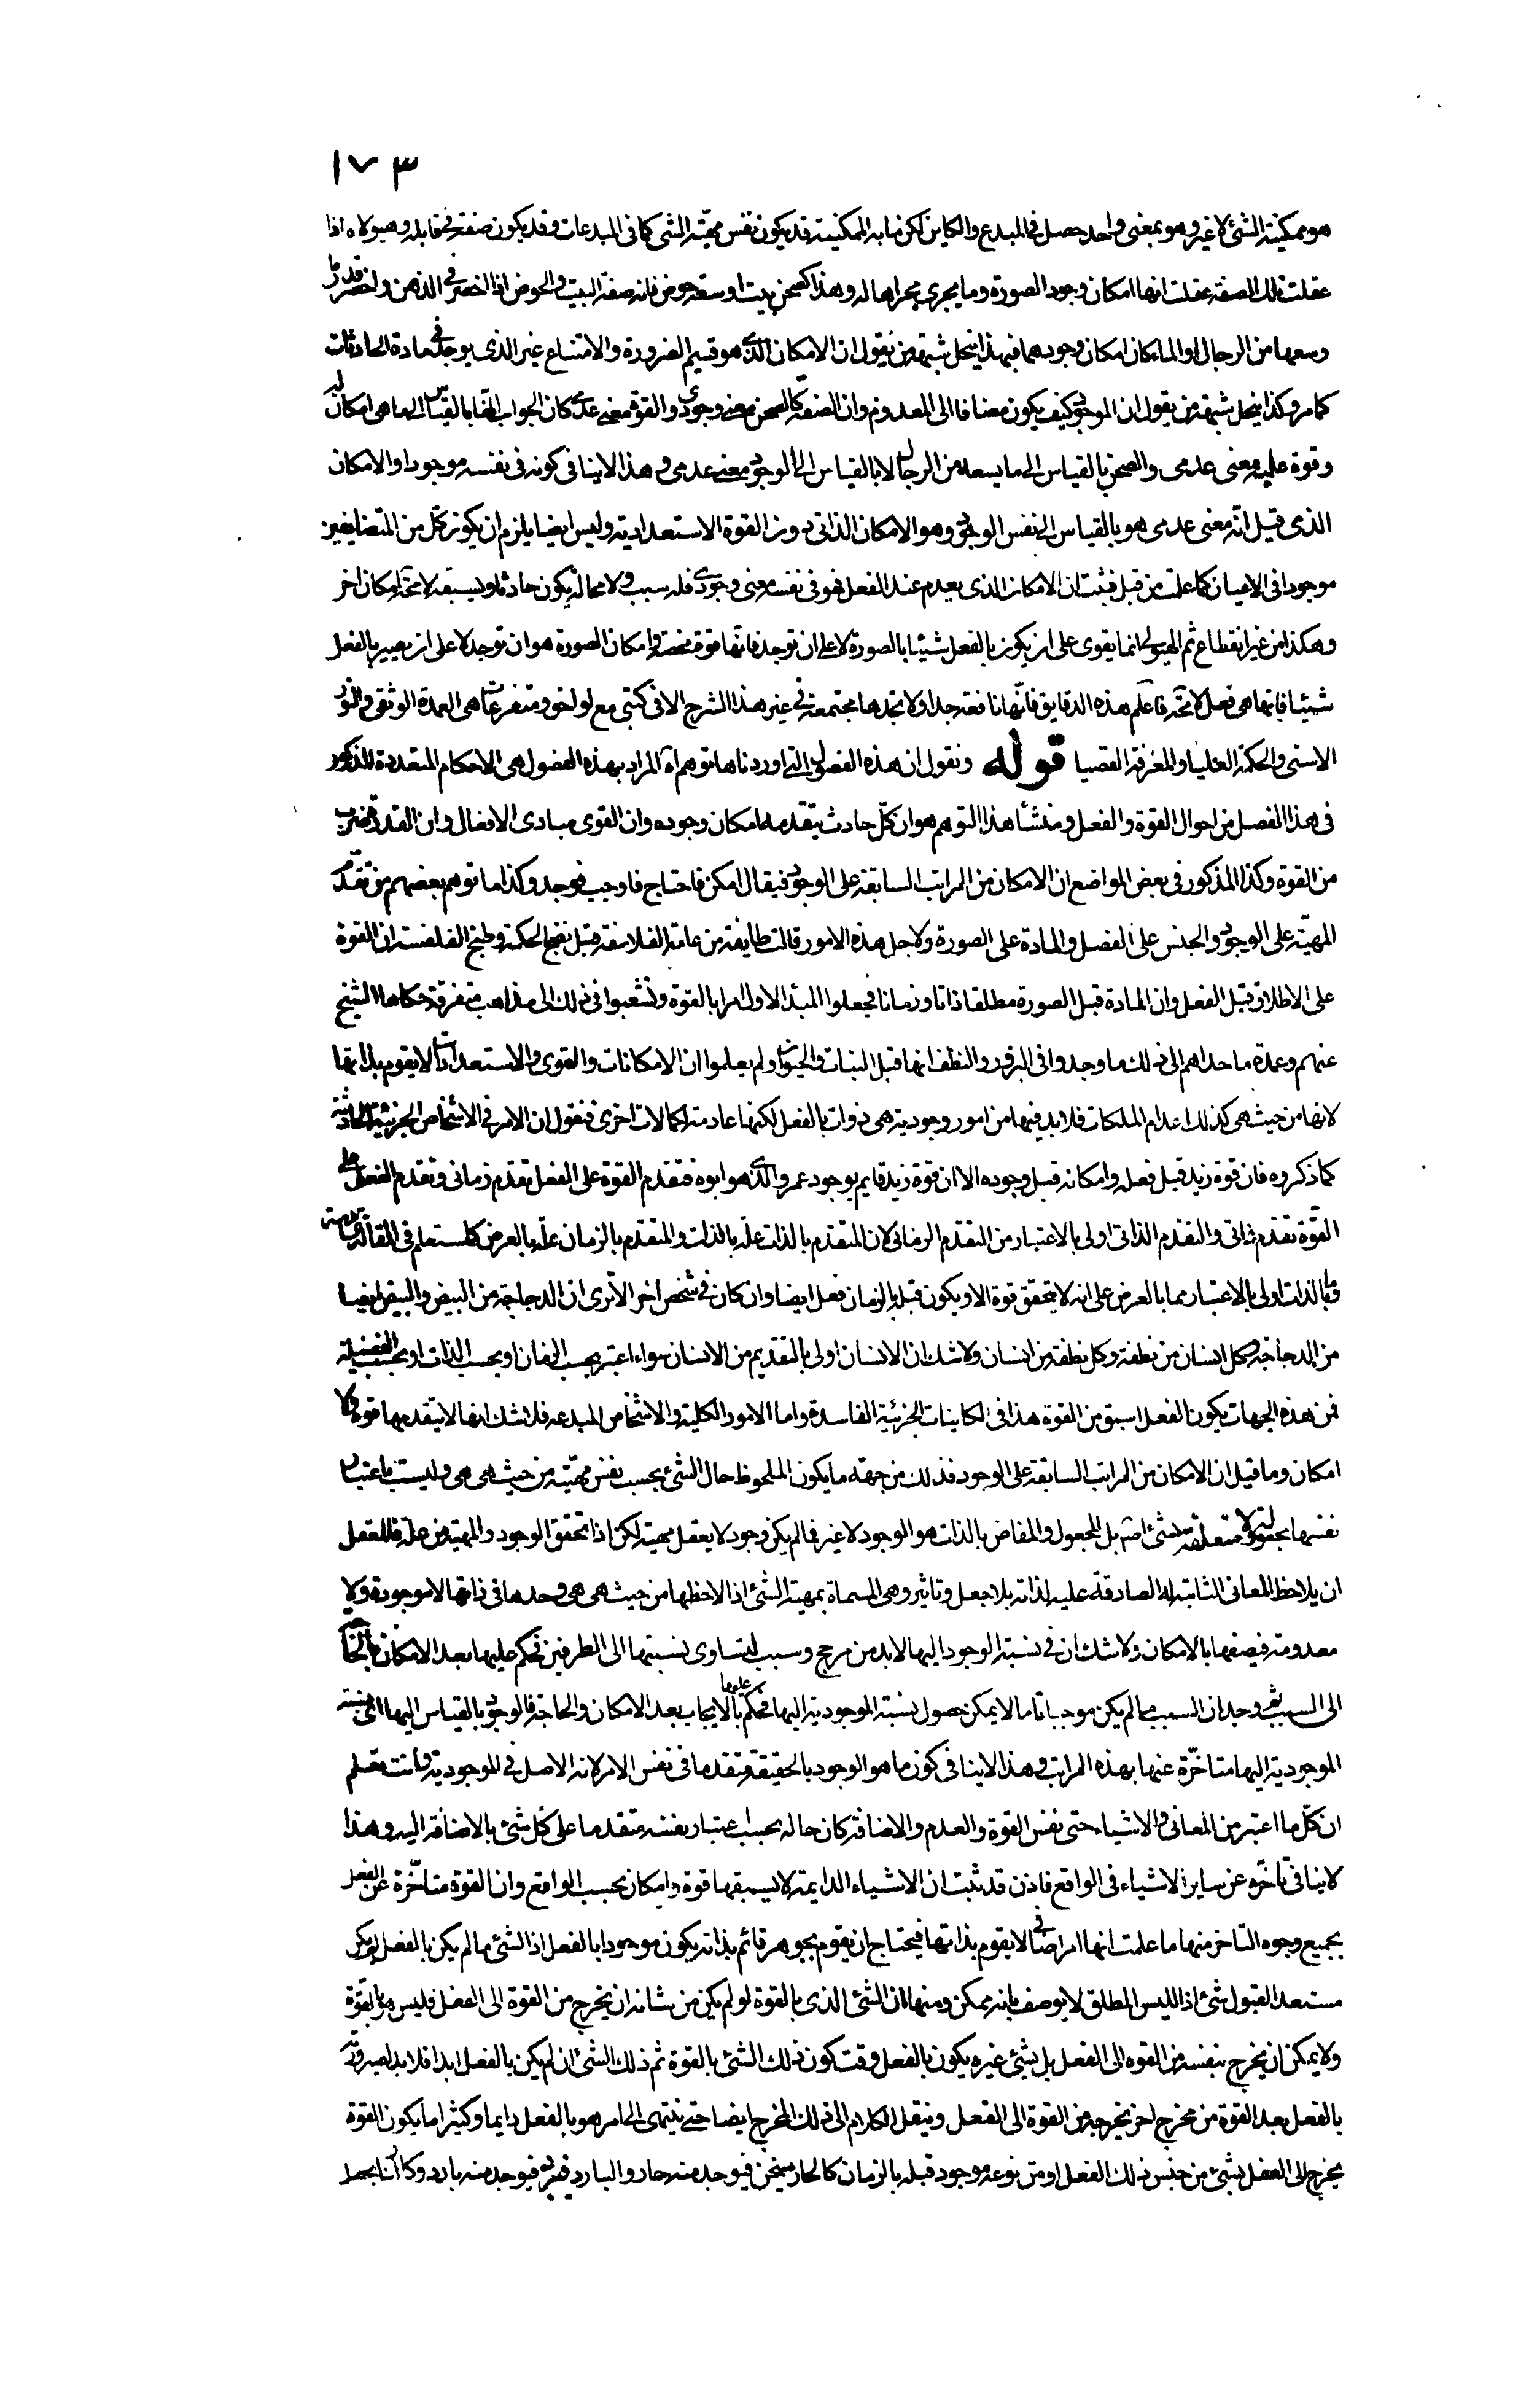 ١٧٣
هو ممكنية الشئ لا غير وهو بمعنى واحد حصل فى المبدع والكاين لكن ما به الممكنية قد يكون نفس مهيّة الشى كما فى المبدعات وقد يكون صفة فى مقابله وهيولاه اذا
عقلت تلك الصفة عقلت انها امكان وجود الصورة وما يجرى مجراها له وهذا كصحن بيت او سعة حوض فانه صفة البيت والحوض اذا احضر فى الذهن واحضر قدر ما
وسعها من الرجال او الماء كان امكان وجودهما فبهذا ينحل شبهة من يقول ان الامكان الذى هو قسيم الضرورة والامتناع غير الذى يوجد فى مادة الحادثات
كما مر وكذا ينحل شبهة من يقول ان الموجود كيف يكون مضافا الى المعدوم وان الصفة كالصحن معنى وجودى والقوة معنى عدمى كان الجواب انها بالقياس الى ما هى امكان له
وقوة عليه معنى عدمى والصحن بالقياس الى ما يسعه من الرجال لا بالقياس الى الوجود معنى عدمى وهذا لا ينافى كونه فى نفسه موجودا والامكان
الذى قيل انّه معنى عدمى هو بالقياس الى نفس الوجود وهو الامكان الذاتى دون القوة الاستعدادية وليس ايضا يلزم ان يكون كل من المتضايفين
موجودا فى الاعيان كما علمت من قبل فثبت ان الامكان الذى يعدم عند الفعل فهو فى نفسه معنى وجودى فله سبب ولا محالة يكون حادثا ويسبقه لا محة امكان اخر
وهكذا من غير انقطاع ثم الهيولى انما يقوى على ان يكون بالفعل شيئا بالصورة لا على ان توجد فانها قوة محضة وامكان الصورة هو ان توجد لا على ان يصير بالفعل
شيئا فانها هى فعل لا محة فاعلم هذه الدقايق فانّها نافعة جدا ولا تجدها مجتمعة فى غير هذا الشرح الا فى كتبى مع لواحق ومتفرعات هى العمدة الوثقى والنور
الاسنى والحكمة العليا والمعرفة القصيا قوله ونقول ان هذه الفصول التى اوردناها توهم اه المراد بهذه الفصول هى الاحكام المتعددة المذكورة
فى هذا الفصل من احوال القوة والفعل ومنشأ هذا التوهم هو ان كلّ حادث يتقدمه امكان وجوده وان القوى مبادى الافعال وان القدرة ضرب
من القوة وكذا المذكور فى بعض المواضع ان الامكان من المراتب السابقة على الوجود فيقال امكن فاحتاج فاوجب فوجد وكذا ما توهم بعضهم من تقدّم
المهيّة على الوجود والجنس على الفصل والمادة على الصورة ولاجل هذه الامور قالت طايفة من عامة الفلاسفة قبل نضج الحكمة وطبخ الفلسفة ان القوة
على الاطلاق قبل الفعل وان المادة قبل الصورة مطلقا ذاتا وزمانا فجعلوا المبدء الاول امرا بالقوة وتشعبوا فى ذلك الى مذاهب متفرقة حكاها الشيخ
عنهم وعمدة ما حداهم الى ذلك ما وجدوا فى البزور والنطف انها قبل النبات والحيوان ولم يعلموا ان الامكانات والقوى والاستعدادات لا يقوم بذاتها
لانها من حيث هى كذلك اعدام الملكات فلا بد فيها من امور وجودية هى ذوات بالفعل لكنها عادمة لكمالات اخرى فنقول ان الامر فى الاشخاص الجزئية الحادثة
كما ذكروه فان قوة زيد قبل فعله وامكانه قبل وجوده الا ان قوة زيد قايم بوجود عمرو الذى هو ابوه فتقدم القوة على الفعل تقدّم زمانى وتقدم الفعل على
القوّة تقدم ذاتى والتقدم الذاتى اولى بالاعتبار من التقدّم الزمانى لان المتقدم بالذات علّة بالذات والمتقدم بالزمان علّة بالعرض كما ستعلم فى المقالة السادسة
وما بالذات اولى بالاعتبار مما بالعرض على انه لا يتحقق قوة الا ويكون قبله بالزمان فعل ايضا وان كان فى شخص اخر الا ترى ان الدجاجة من البيض والبيض ايضا
من الدجاجة وكل انسان من نطفة وكل نطفة من انسان ولا شك ان الانسان اولى بالتقديم من الانسان سواء اعتبر بحسب الزمان او بحسب الذات او بحسب الفضيلة
فمن هذه الجهات يكون الفعل اسبق من القوة هذا فى الكاينات الجزئية الفاسدة واما الامور الكلية والاشخاص المبدعة فلا شك انها لا يتقدمها قوة ولا
امكان وما قيل ان الامكان من المراتب السابقة على الوجود فذلك من جهة ما يكون الملحوظ حال الشئ بحسب نفس مهيّته من حيث هى هى وليست باعتبار
نفسها مجعولة ولا متعلقة لشئ اصم بل المجعول والمفاض بالذات هو الوجود لا غير فما لم يكن وجود لا يعقل مهية لكن اذا تحقق الوجود والمهية من علة فللعقل
ان يلاحظ المعانى الثابتة له الصادقة عليه لذاته بلا جعل وتاثير وهى المسماة بمهية الشئ اذا لاحظها من حيث هى هى وحدها فى ذاتها لا موجودة ولا
معدومة فيصفها بالامكان ولا شك ان فى نسبة الوجود اليها لا بد من مرجح وسبب لتساوى نسبتها الى الطرفين فحكم عليها بعد الامكان بالحاجة
الى السبب ثم وجد ان السبب ما لم يكن موجبا تاما لا يمكن حصول نسبة الموجودية اليها فحكم عليها بالايجاب بعد الامكان والحاجة فالوجود بالقياس اليها اى نسبة
الموجودية اليها متاخّرة عنها بهذه المراتب وهذا لا ينافى كون ما هو الوجود بالحقيقة متقدما فى نفس الامر لانه الاصل فى الموجودية وانت تعلم
ان كلّ ما اعتبر من المعانى والاشياء حتى نفس القوة والعدم والاضافة كان حاله بحسب اعتبار نفسه متقدما على كل شئ بالاضافة اليه وهذا
لا ينافى تأخرّه عن ساير الاشياء فى الواقع فاذن قد ثبت ان الاشياء الدايمة لا يسبقها قوة وامكان بحسب الواقع وان القوة متاخّرة عن الفعل
بجميع وجوه التاخر منها ما علمت انها لا يقوم بذاتها فيحتاج ان يقوم بجوهر قائم بذاته يكون موجودا بالفعل اذ الشئ ما لم يكن بالفعل لم يكن
مستعد القبول شئ اذ الليس المطلق لا يوصف بانه ممكن ومنها ان الشئ الذى بالقوة لو لم يكن من شانه ان يخرج من القوة الى الفعل فليس هو بالقوّة
ولا يمكن ان يخرج بنفسه من القوه الى الفعل بل بشئ غيره يكون بالفعل وقت كون ذلك الشئ بالقوة ثم ذلك الشئ ان لم يكن بالفعل ابدا فلا بد لصيرورته
بالفعل بعد القوة من مخرج اخر يخرجه من القوة الى الفعل وينقل الكلام الى ذلك المخرج ايضا حتى ينتهى الى امر هو بالفعل دايما وكثيرا ما يكون القوة
يخرج الى الفعل بشئ من جنس ذلك الفعل او من نوعه موجود قبله بالزمان كالحار يسخن فيوجد منه حار والبارد فيبرد فيوجد منه بارد وكانا بجعل